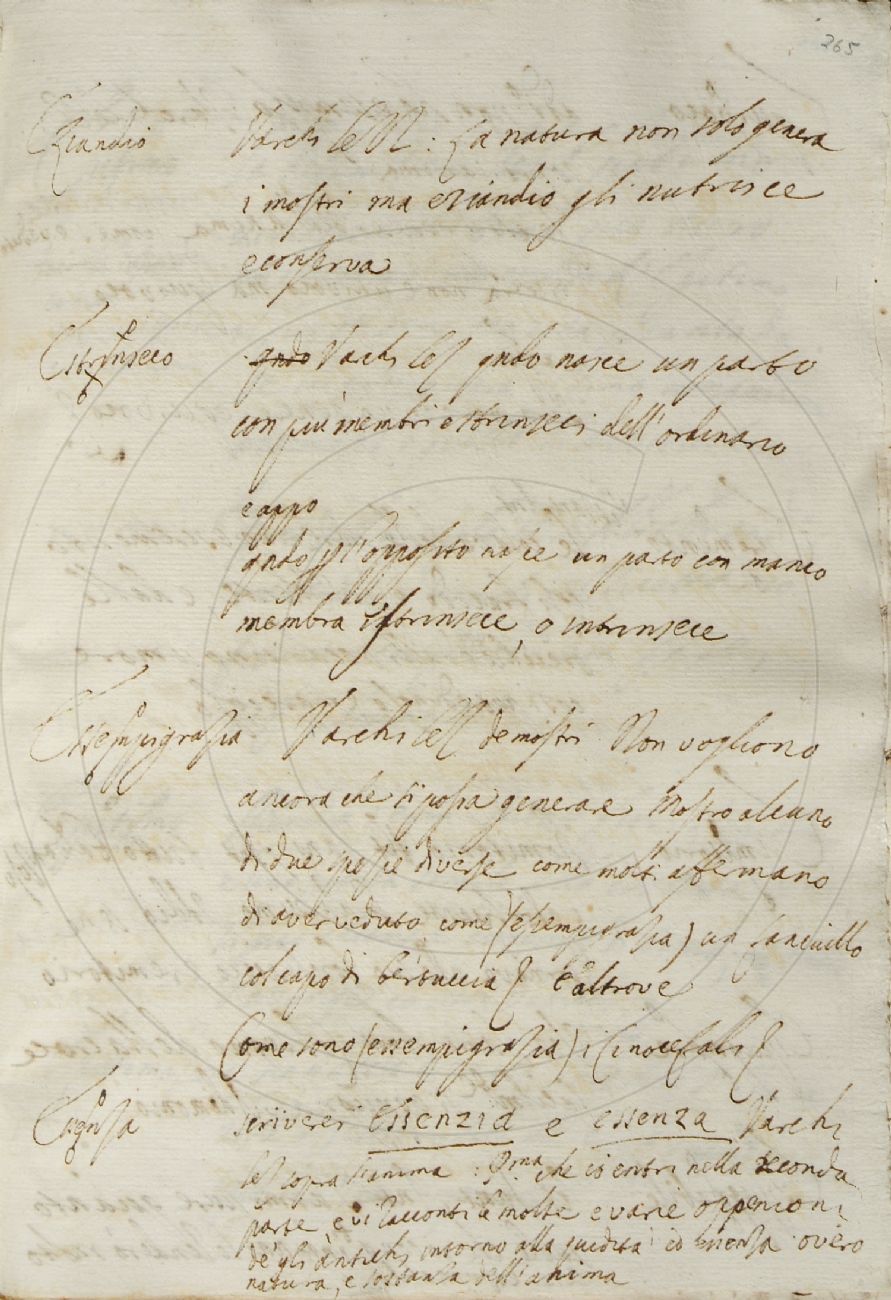 265
Eziandio Varchi lez : La natura non solo genera
i mostri ma eziandio gli nutrisce
e conserva
Estrinseco qndo Varchi lez qndo nasce un parto
con più membri estrinseci dell'ordinario
e appo
qndo p l'opposito nasce un parto con manco
membra istrinsece, o intrinsece
Essempigrazia Varchi lez de mostri Non vogliono
ancora che si possa generare Mostro alcuno
di due spezie diverse come molti affermano
di aver veduto come (esempigrazia) un fanciullo
col capo di bertuccia E altrove
Come sono (essempigrazia) i Cinocefali
scriverei Essenzia e essenza Varchi
lez sopra l'anima : Pma che io entri nella seconda
parte, e vi racconti le molte e varie oppenioni
de gli antichi intorno alla quidità ed essenza overo
natura, e sostanza dell'anima